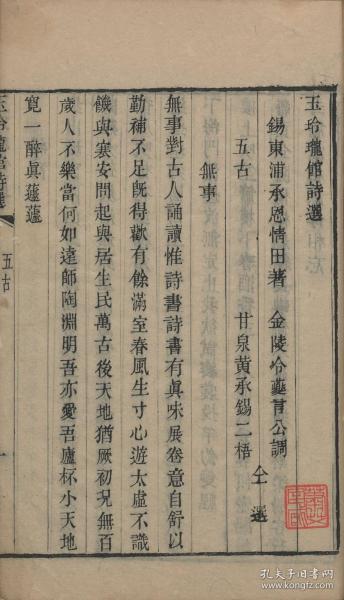 玉玲瓏館詩選
錫東浦承恩情田著　金陵令蘷言公調
五古　甘泉黄承錫二梧　仝選
無事
無事對古人誦讀惟詩書詩書有眞味展卷意自舒以
勤補不足旣得歡有餘滿室春風生寸心遊太虛不識
饑與寒安問起與居生民萬古後天地猶厥初况無百
歲人不樂當何如遠師陶淵明吾亦愛吾廬杯小天地
寛一醉眞蘧蘧
玉玲瓏館詩選
五古
一
孔夫子旧书网